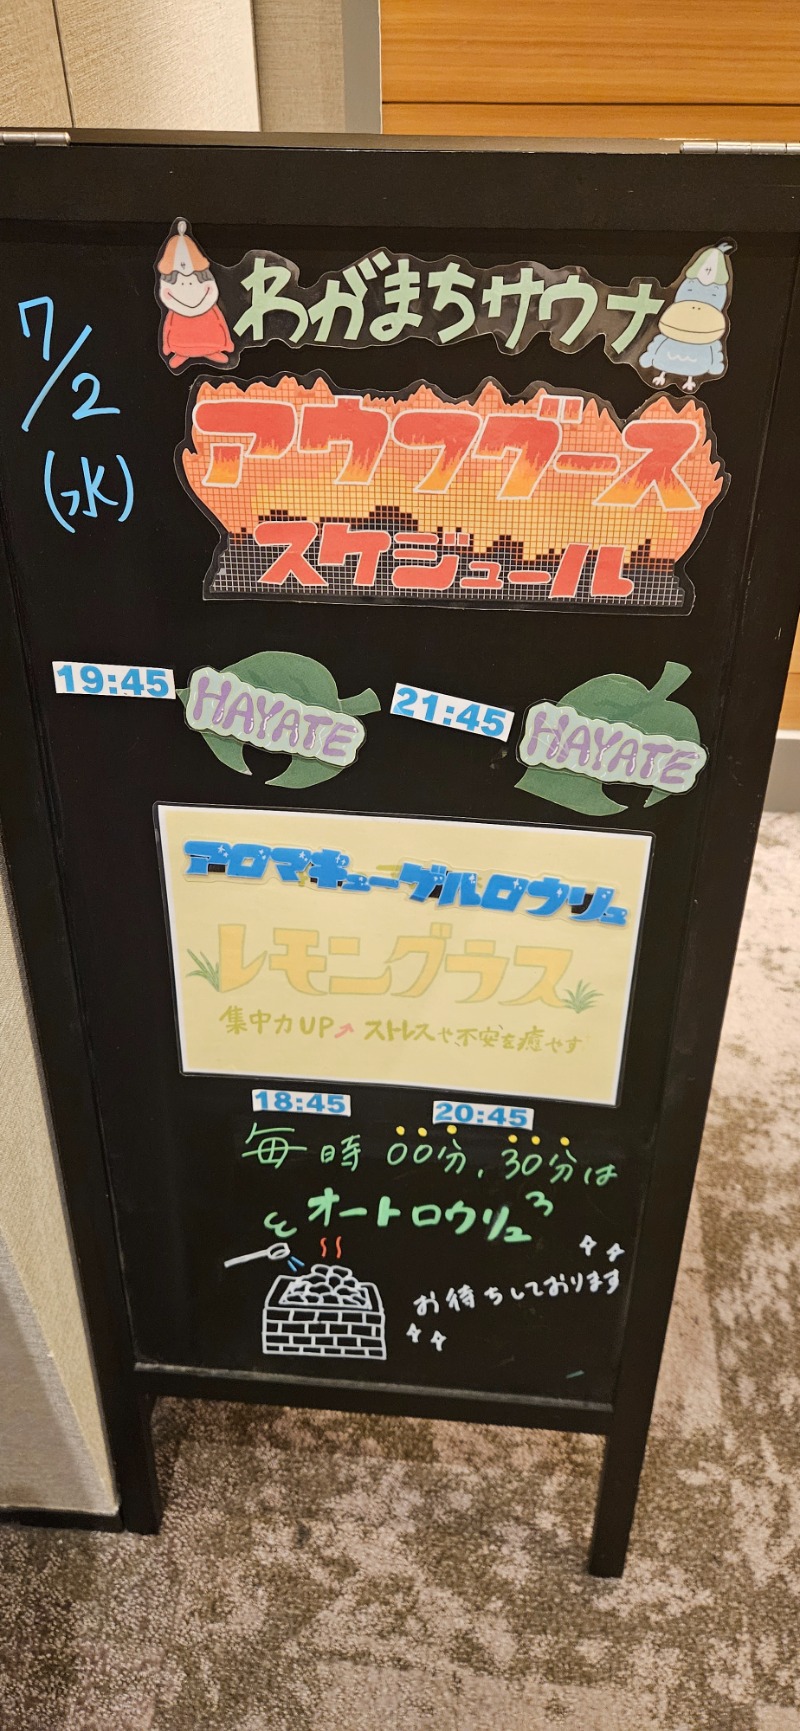 わがまちサウナ
7/2
(水)
アウフグース
スケジュール
19:45 HAYATE 21:45 HAYATE
アロマキューゲルロウリュ
レモングラス
集中力UP↗ ストレスや不安を癒やす
18:45 20:45
毎時 00分、30分は
オートロウリュ
お待ちしております